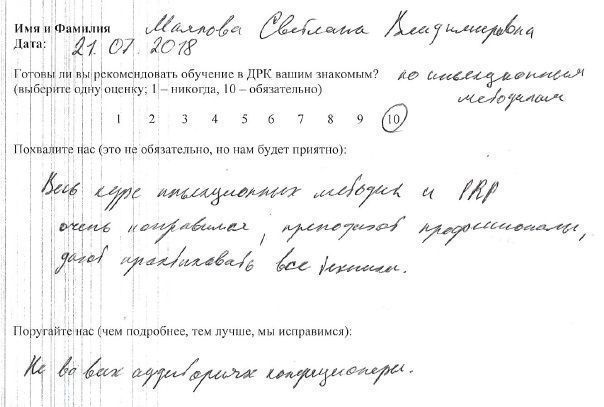 Имя и Фамилия Маяпова Светлана Владимировна
Дата: 21.07.2018
Готовы ли вы рекомендовать обучение в ДРК вашим знакомым? по инъекционным
(выберите одну оценку; 1 – никогда, 10 – обязательно) методикам
1 2 3 4 5 6 7 8 9 10
Похвалите нас (это не обязательно, но нам будет приятно):
Весь курс инъекционных методик и PRP
очень понравился, преподают профессионалы,
дают практиковать все техники.
Поругайте нас (чем подробнее, тем лучше, мы исправимся):
Не во всех аудиториях кондиционеры.